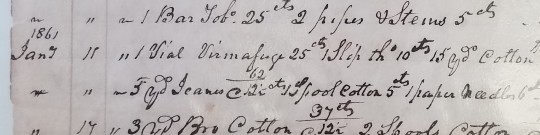 " " " 1 Bar Tobo. 25cts 2 pipes & Stems 5cts
1861
Jany 11 " 1 Vial Virmafuge 25cts 1 Slip thd 10cts 15 yds Cotton
" " " 5 yd Jeanes @ 12½cts 62 1 Spool Cotton 5cts 1 paper Needles 6ct
" 17 " 3 yd Bro Cotton @ 12½ 37cts 2 Spools Cotton